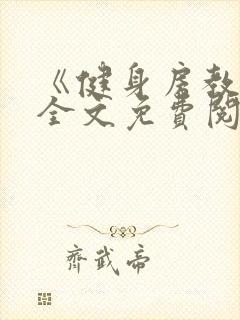 《健身房教
全文免費閱
齊武帝